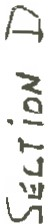 SECTION D